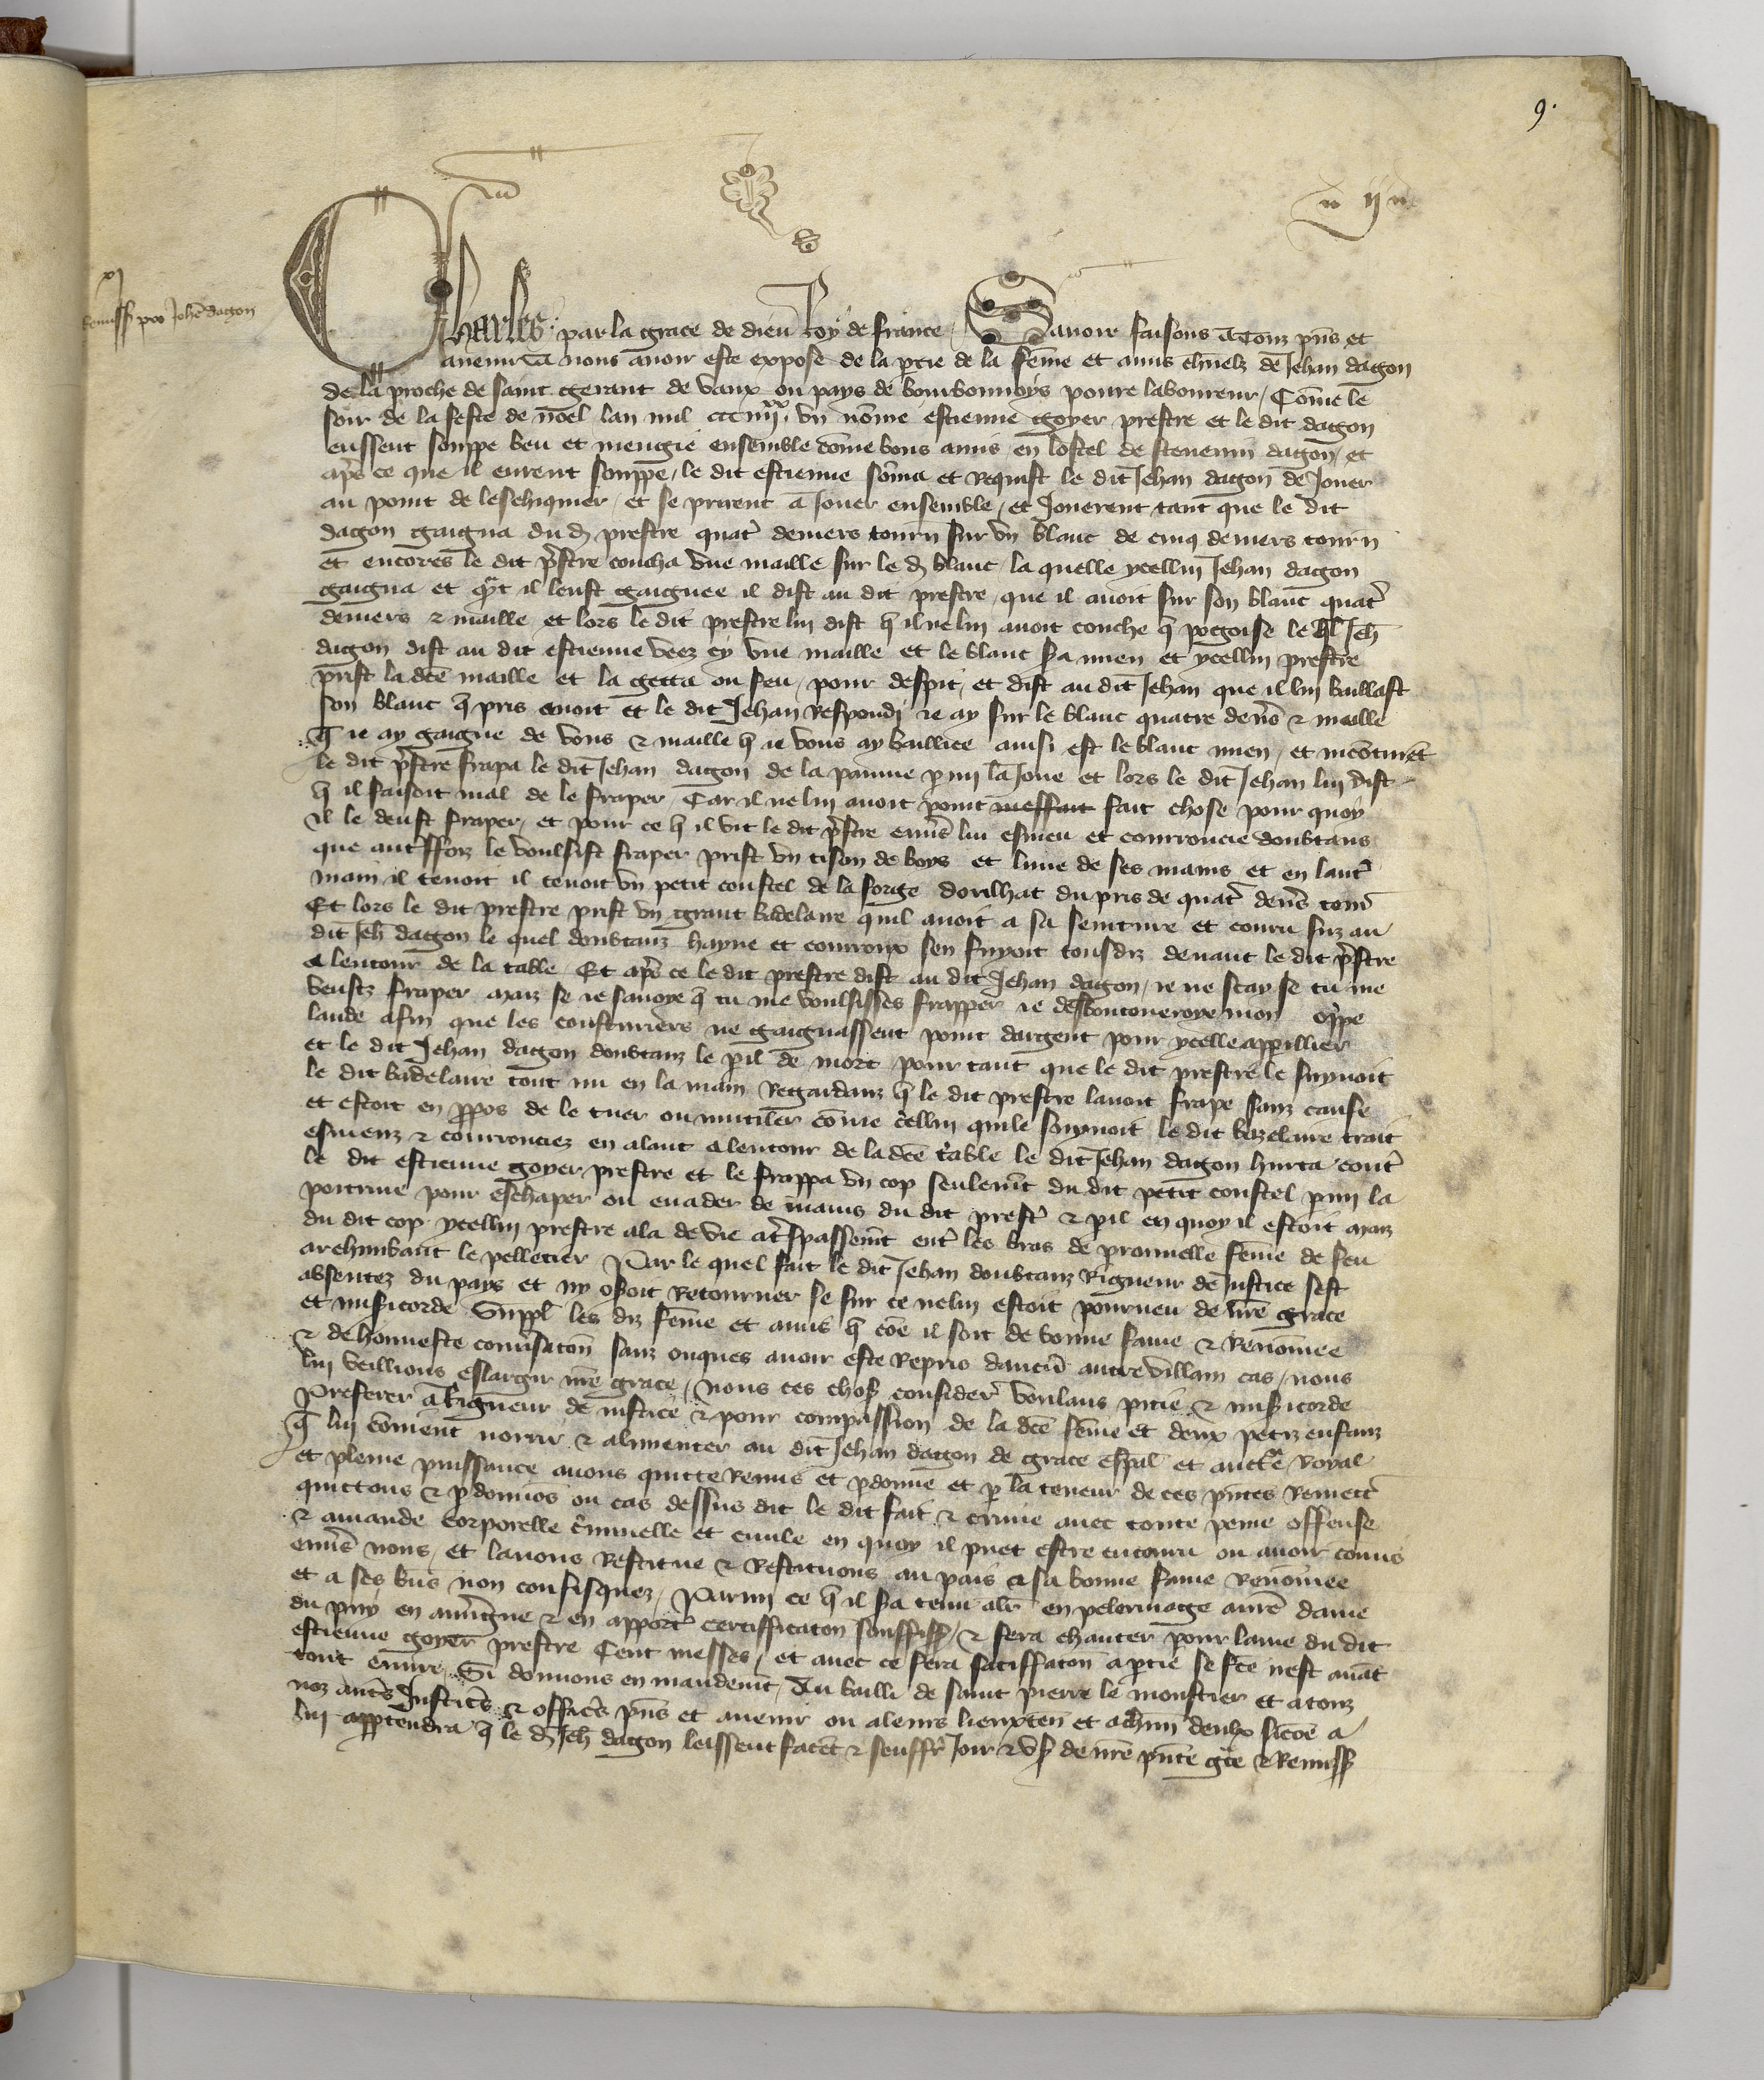 9.
xj
Remiss pro Johe dagon
Charles par la grace de dieu Roy de france Sauoir faisons a Touz pns et
auenir a nous auoir este expose de la ptie de la feme et amis chnelz de Jehan dagon
de la proche de saint gerant de vaux ou pays de bourbonnoys poure laboureur Come le
soir de la feste de noel lan mil ccc iiijxx vn nome estienne goyer prestre et le dit dagon
eussent souppe beu et mengie ensemble come bons amis en lostel de steuenin dagon et
apres ce que il eurent souppe le dit estienne soma et Requist le dit Jehan dagon de Jouer
au point de leschiquier et se prirent a Jouer ensemble et Jouerent tant que le dit
dagon gaigna du d prestre quatr deniers tourn sur vn blanc de cinq deniers tourn
et encores le dit prestre coucha vne maille sur le d blanc la quelle ycellui Jehan dagon
gaigna et qnt il leust gaignee il dist au dit prestre que il auoit sur son blanc quatr
deniers & maille et lors le dit prestre lui dist q il ne lui auoit couche q pogoise le ql Jeh
dagon dist au dit estienne veez cy vne maille et le blanc sa mien et ycellui prestre
prist la dce maille et la getta ou feu pour despit et dist au dit Jehan que il lui baillast
son blanc q pris auoit et le dit Jehan Respondi ie ay sur le blanc quatre den & maille
q ie ay gaigne de vous & maille q ie vous ay baillee ainsi est le blanc mien et incontinet
le dit prestre frapa le dit Jehan dagon de la paume pmi la Joue et lors le dit Jehan lui dist
q il faisoit mal de le fraper Car il ne lui auoit point meffait fait chose pour quoy
il le deust fraper et pour ce q il vit le dit prestre enuers lui esmeu et courroucie doubtans
que autffoiz le voulsist fraper prist vn tison de boys et lune de ses mains et en lautr
main il tenoit il tenoit vn petit coustel de la forge dorilhat du pris de quatr deners tour
Et lors le dit prestre prist vn grant badelaire quil auoit a sa seinture et couru suz au
dit Jeh dagon le quel doubtanz hayne et courroux sen fuyoit tousdiz deuant le dit prestre
a lentour de la table Et apres ce le dit prestre dist au dit Jehan dagon ie ne scay se tu me
veustz fraper maiz se ie sauoye q tu me voulsisses frapper ie desboutoneroye mon
lande afin que les cousturiers ne gaignassent point dargent pour ycelle apparillier
et le dit Jehan dagon doubtanz le pil de mort pour tant que le dit prestre le suyuoit
le dit badelaire tout nu en la main Regardanz q le dit prestre lauoit frape sanz cause
et estoit en ppos de le tuer ou mutiler come cellui qui le suyuoit le dit bazelaire trait
esmeuz & courrouciez en alant a lentour de la dce table le dit Jehan dagon hurta contr
le dit estienne goyer prestre et le frappa vn cop seulemt du dit petit coustel pmi la
poitrine pour eschaper ou euader de mains du dit prestr & pil en quoy il estoit maiz
du dit cop ycellui prestre ala de vie a trespassemt entr les bras de peronnelle feme de feu
archimbaut le pelletier Par le quel fait le dit Jehan doubtanz Rigueur de Justice sest
absentez du pays et ny osoit Retourner se sur ce ne lui estoit pourueu de nre grace
et misicorde Suppl les diz feme et amis q coe il soit de bonne fame & Renomee
& de honneste conusaton sanz onques auoir este Repris daucun autre villain cas nous
lui veillions eslargir nre grace Nous ces chos consider voulans pitie & misicorde
Preferer a Rigueur de iustice & pour compassion de la dce feme et deux petiz enfanz
q lui conuient norrir & alimenter au dit Jehan dagon de grace espal et auctte Royal
et pleine puissance auons quitte Remis et pdonne et p la teneur de ces pntes Remett
quittons & pdonnos ou cas dessus dit le dit fait & crime auec toute peine offense
& amande corporelle criminelle et ciuile en quoy il puet estre encouru ou auoir comis
enuers nous et lauons Restitue & Restituons au pais & sa bonne fame Renomee
et a ses bns non confisquez Parmi ce q il sa tenu aler en pelerinage a nre dame
du puy en auuergne & en apportr certifficaton souffis & fera chanter pour lame du dit
estienne goyer prestre Cent messes et auec ce fera satiffaton a ptie se fce nest auat
tout euure Si donnons en mandemt Au bailli de saint pierre le monstier et a touz
noz autes Justicies & offices pns et auenir ou a leurs lieuxten et a chun deulx sicoe a
lui apptendra q le d Jeh dagon leissent facet & seuffr Joir & vs de nre pnte gce & Remiss